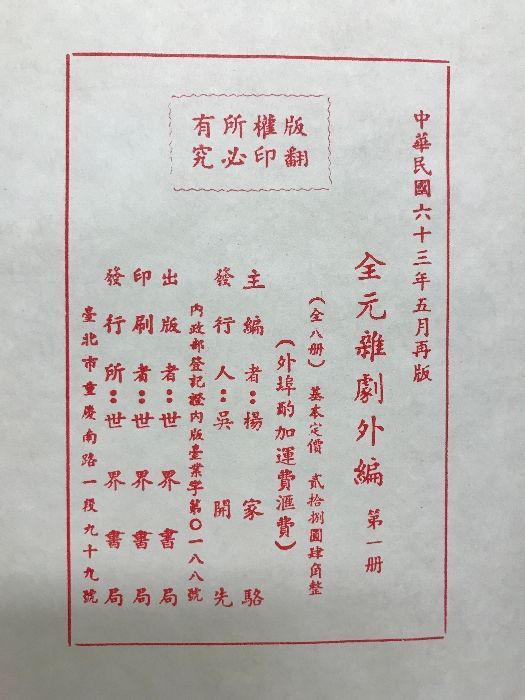 中華民國六十三年五月再版
全元雜劇外編 第一册
(全八册) 基本定價 貳拾捌圓肆角整
(外埠酌加運費滙費)
主編者:楊家駱
發行人:吳開先
內政部登記證內版臺業字第〇一八八號
出版者:世界書局
印刷者:世界書局
發行所:世界書局
臺北市重慶南路一段九十九號
版權所有
翻印必究